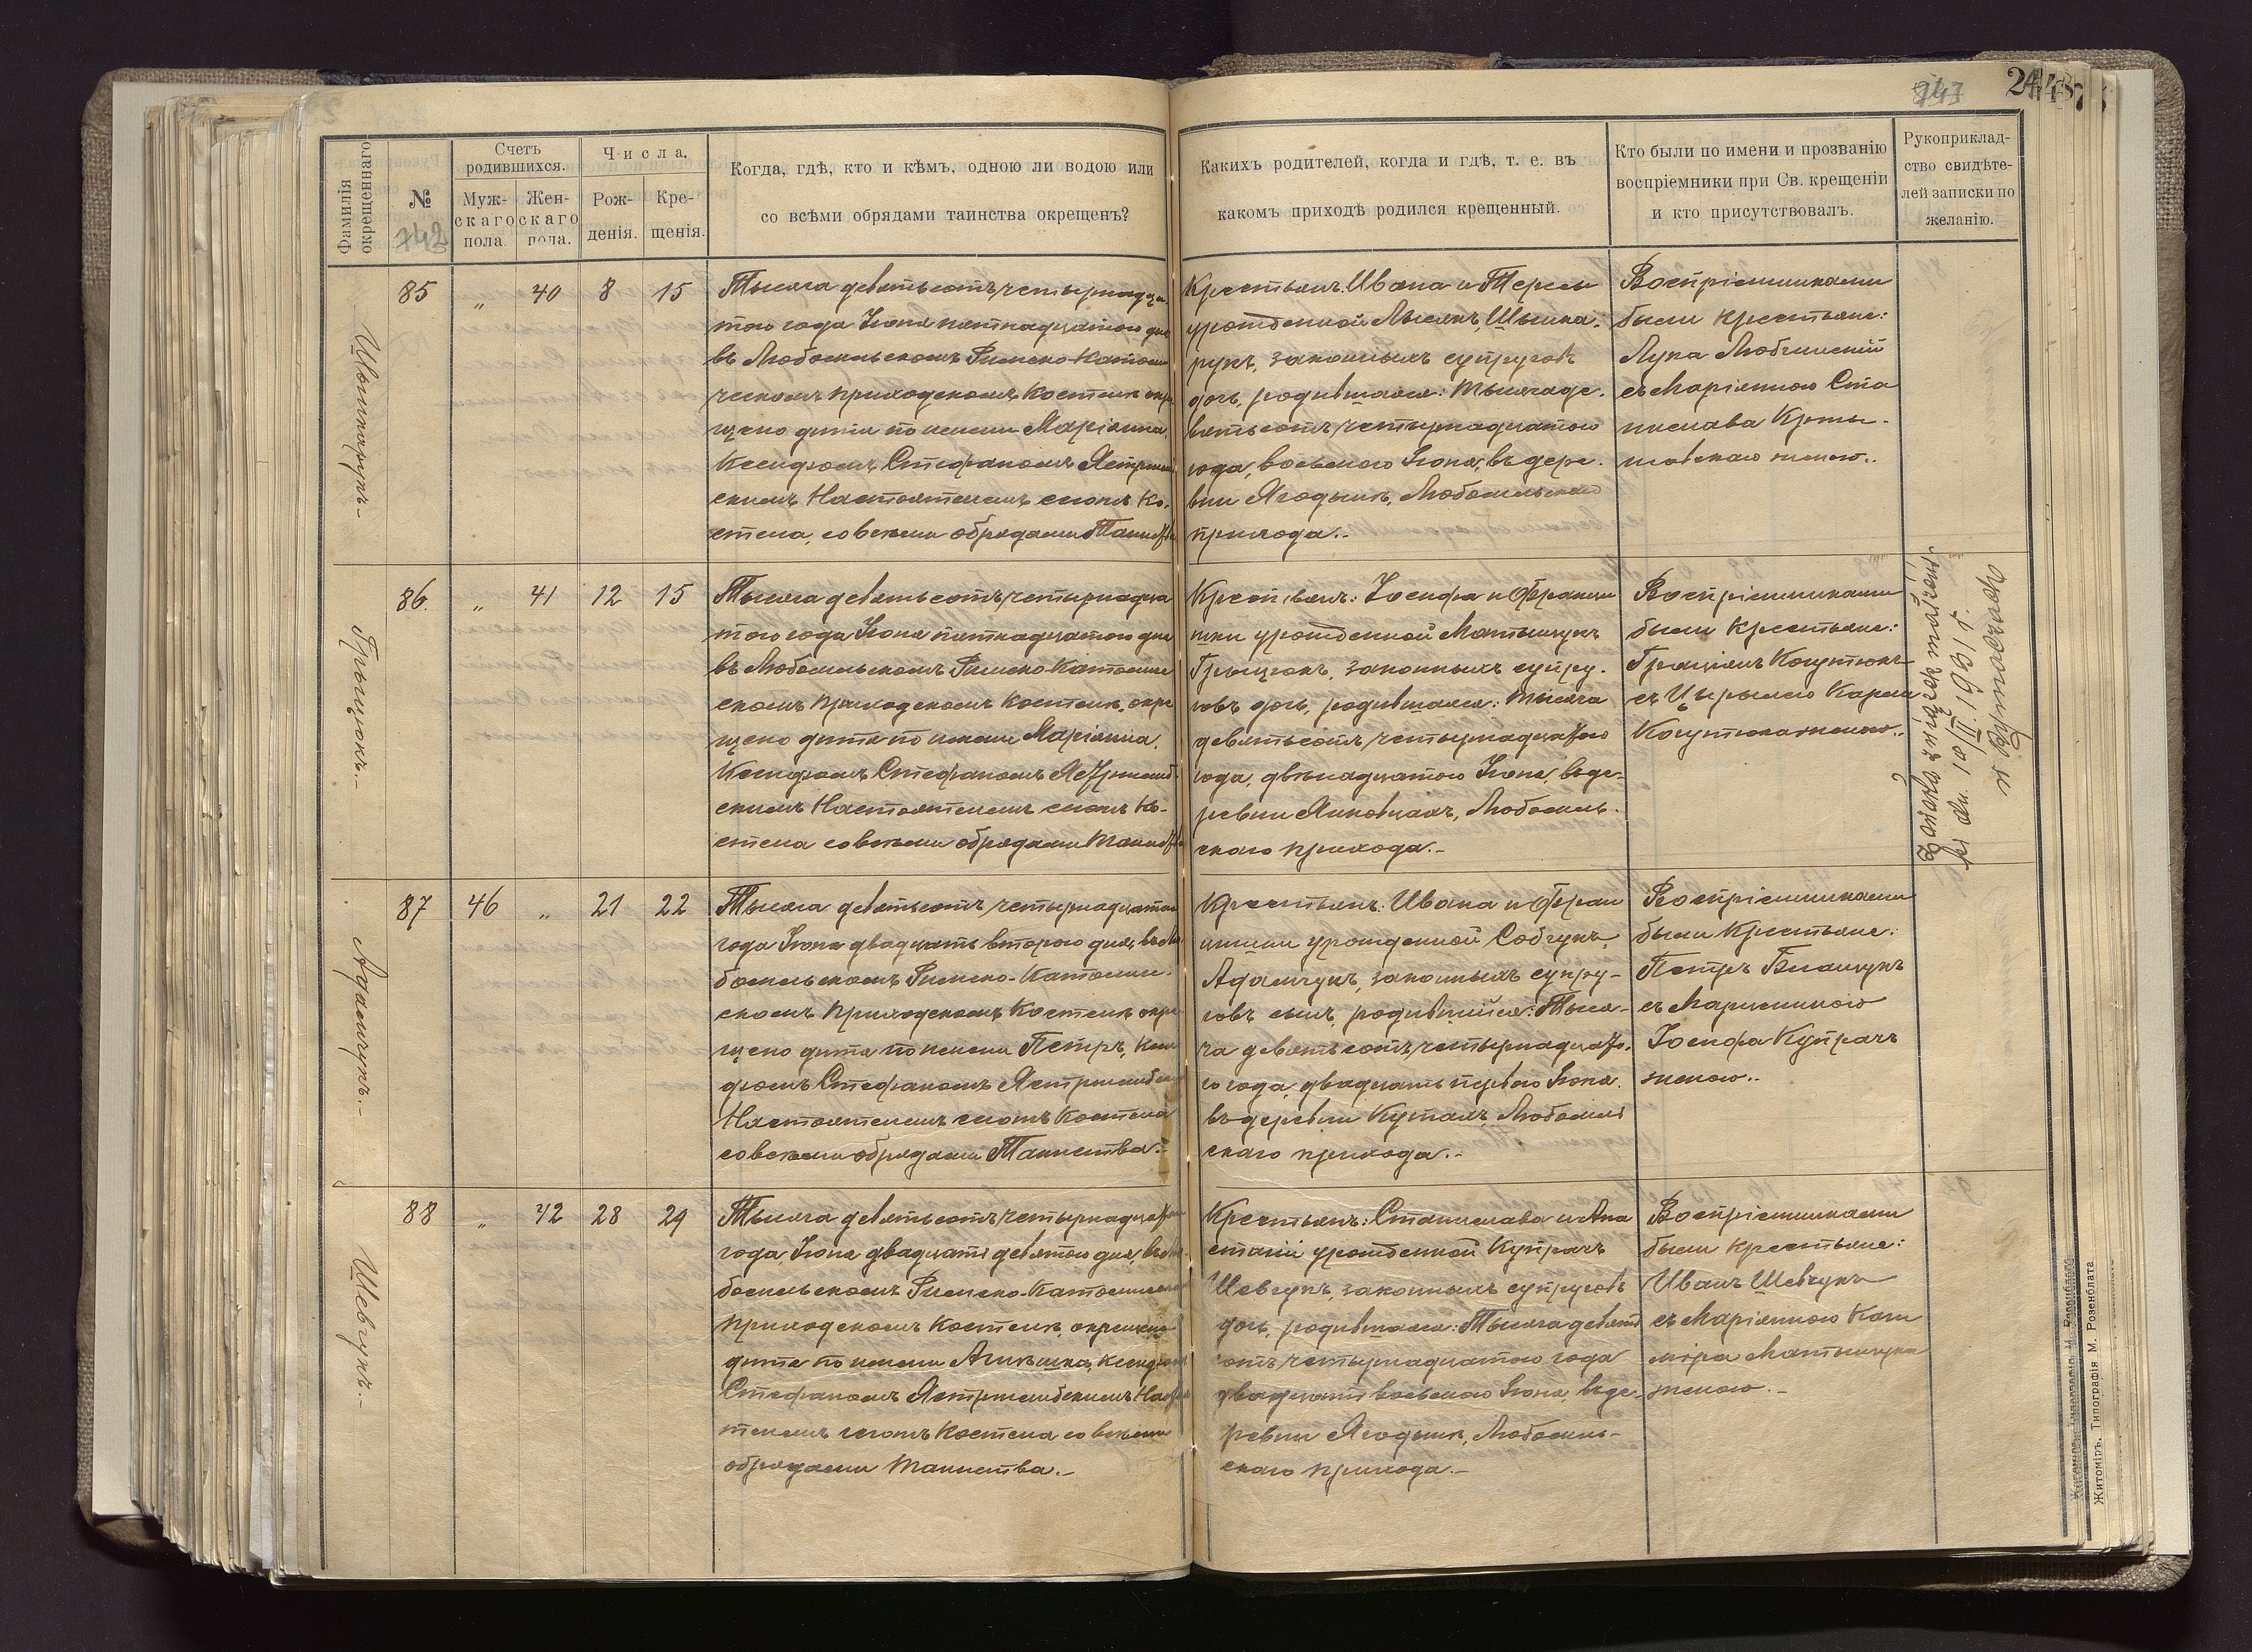 747
Фамилія окрещеннаго
№
742
Счетъ родившихся.
Муж-скаго пола.
Жен-скаго пола.
Числа.
Рож-денія.
Кре-щенія.
Когда, гдѣ, кто и кѣмъ, одною ли водою или
со всѣми обрядами таинства окрещенъ?
Какихъ родителей, когда и гдѣ, т. е. въ
какомъ приходѣ родился крещенный.
Кто были по имени и прозванію
воспріемники при Св. крещеніи
и кто присутствовалъ.
Рукоприклад-
ство свидѣте-
лей записки по
желанію.
85 " 40 8 15
Тысяча девятьсотъ четырнадца
таго года Іюня пятнадцатаго дня
въ Любомльскомъ Римско-Католи
ческомъ приходскомъ костелѣ окре
щено дитя по имени Маріанна,
Ксендзомъ Стефаномъ Ястржемб
скимъ Настоятелемъ сего Ко-
стела, со всѣми обрядами Таинства
Крестьянъ: Ивана и Терезы
урожденной Лысякъ,
законныхъ супруговъ
дочь, родившаяся: тысяча де-
вятьсотъ четырнадцатаго
года, восьмого Іюня, въ дерев-
вни Ягодынѣ, Любомльскаго
прихода.-
Воспріемниками
были крестьяне:
Лука
съ Маріанною Ста
нислава
женою.
86. " 41 12 15
Грыцюкъ.-
Тысяча девятьсотъ четырнадца
таго года Іюня пятнадцатаго дня
въ Любомльскомъ Римско-Католиче
скомъ приходскомъ костелѣ, окре
щено дитя по имени Маріанна,
Ксендзомъ Стефаномъ Ястржемб
скимъ Настоятелемъ сего Ко-
стела со всѣми обрядами Таинства
Крестьянъ: Іосифа и Франци
шки урожденной Матвейчукъ
Грыцюкъ, законныхъ супру-
говъ дочь, родившаяся: тысяча
девятьсотъ четырнадцатаго
года, двѣнадцатаго Іюня, въ де-
ревни Янковцахъ, Любомль-
скаго прихода.-
Воспріемниками
были крестьяне:
съ Карла
женою..
Zawarła związek małżeń
ki dn. 10/II. 1931 r.
87 46 " 21 22
Адамчукъ.-
Тысяча девятьсотъ четырнадцатаго
года Іюня двадцать второго дня, въ Лю
бомльскомъ Римско-Католиче-
скомъ приходскомъ костелѣ окре
щено дитя по имени Петръ, Ксен
дзомъ Стефаномъ Ястржембск
Настоятелемъ сего Костела
со всѣми обрядами Таинства.-
Крестьянъ: Ивана и Фран
цишки урожденной Собчукъ,
Адамчукъ, законныхъ супру-
говъ сынъ, родившійся: Тыся-
ча девятьсотъ четырнадцата-
го года, двадцать перваго Іюня
въ деревни Кутахъ, Любомль
скаго прихода.-
Воспріемниками
были крестьяне:
Петръ
съ Маріанною
Іосифа Купрачъ
женою..
88 " 42 28 29
Шевчукъ.-
Тысяча девятьсотъ четырнадцатаго
года, Іюня двадцать девятаго дня, въ Лю-
бомльскомъ Римско-Католическомъ
приходскомъ костелѣ, окрещено
дитя по имени Агнѣшка, Ксендзомъ
Стефаномъ Ястржембскимъ Настоя
телемъ сего Костела со всѣми
обрядами Таинства.-
Крестьянъ: Станислава и Ана
стазіи урожденной Купрачъ
Шевчукъ, законныхъ супруговъ
дочь, родившаяся: Тысяча девять
сотъ четырнадцатаго года
двадцать восьмаго Іюня, въ де-
ревни Ягодынѣ, Любомль-
скаго прихода.-
Воспріемниками
были крестьяне:
Иванъ Шевчукъ
съ Маріанною Кази
міра Матвейчука
женою.-
Житоміръ. Типографія М. Розенблата